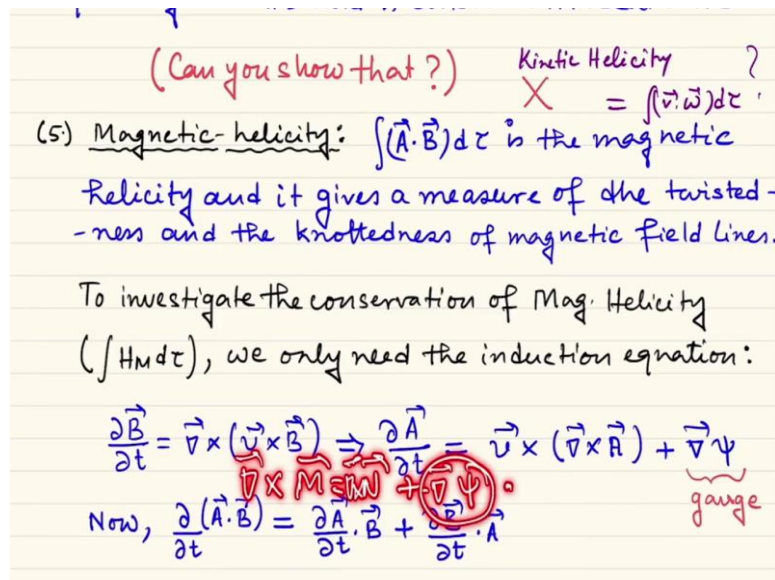 (Can you show that?)
Kinetic Helicity ?
X = ∫(v⃗·ω⃗)dτ
(5.) Magnetic-helicity: ∫(A⃗·B⃗)dτ is the magnetic
helicity and it gives a measure of the twisted-
-ness and the knottedness of magnetic field lines.
To investigate the conservation of Mag. Helicity
(∫H_M dτ), we only need the induction equation:
∂B⃗/∂t = ∇⃗×(v⃗×B⃗) ⇒ ∂A⃗/∂t = v⃗×(∇⃗×A⃗) + ∇⃗ψ
gauge
+ ∇⃗ψ
Now, ∂/∂t (A⃗·B⃗) = ∂A⃗/∂t · B⃗ + ∂B⃗/∂t · A⃗